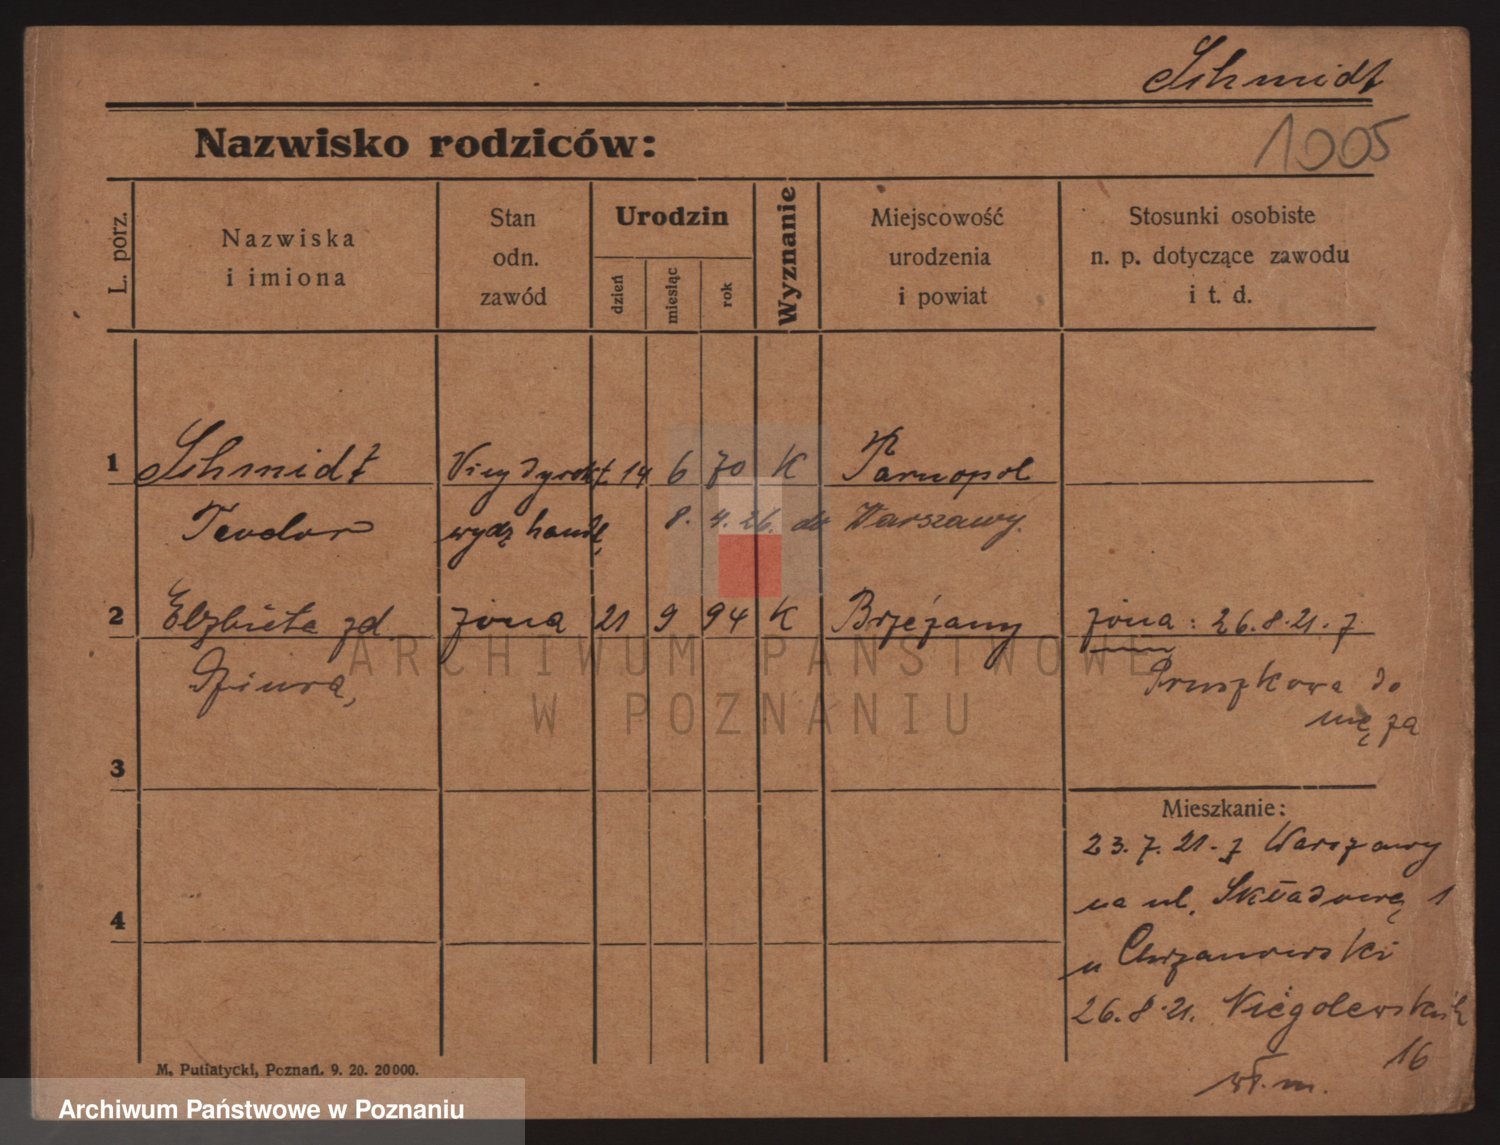 Schmidt
Nazwisko rodziców:
1005
L. porz.
Nazwiska
i imiona
Stan
odn.
zawód
Urodzin
dzień
miesiąc
rok
Wyznanie
Miejscowość
urodzenia
i powiat
Stosunki osobiste
n. p. dotyczące zawodu
i t. d.
1 Schmidt Vicedyrekt. 14 6 70 K Tarnopol
Teodor wydz handl. 8. 4. 26. do Warszawy.
2 Elżbieta zd. żona 21 9 94 K Brzeżany żona: 26.8.21. z
Dziura, Pruszkowa do
męża
3
Mieszkanie:
23.7.21. z Warszawy
na ul. Składową 1
4
u Chrzanowski
26.8.21. Niegolewskich
16
wł. m.
M. Putiatycki, Poznań. 9. 20. 20000.
ARCHIWUM PAŃSTWOWE
W POZNANIU
Archiwum Państwowe w Poznaniu